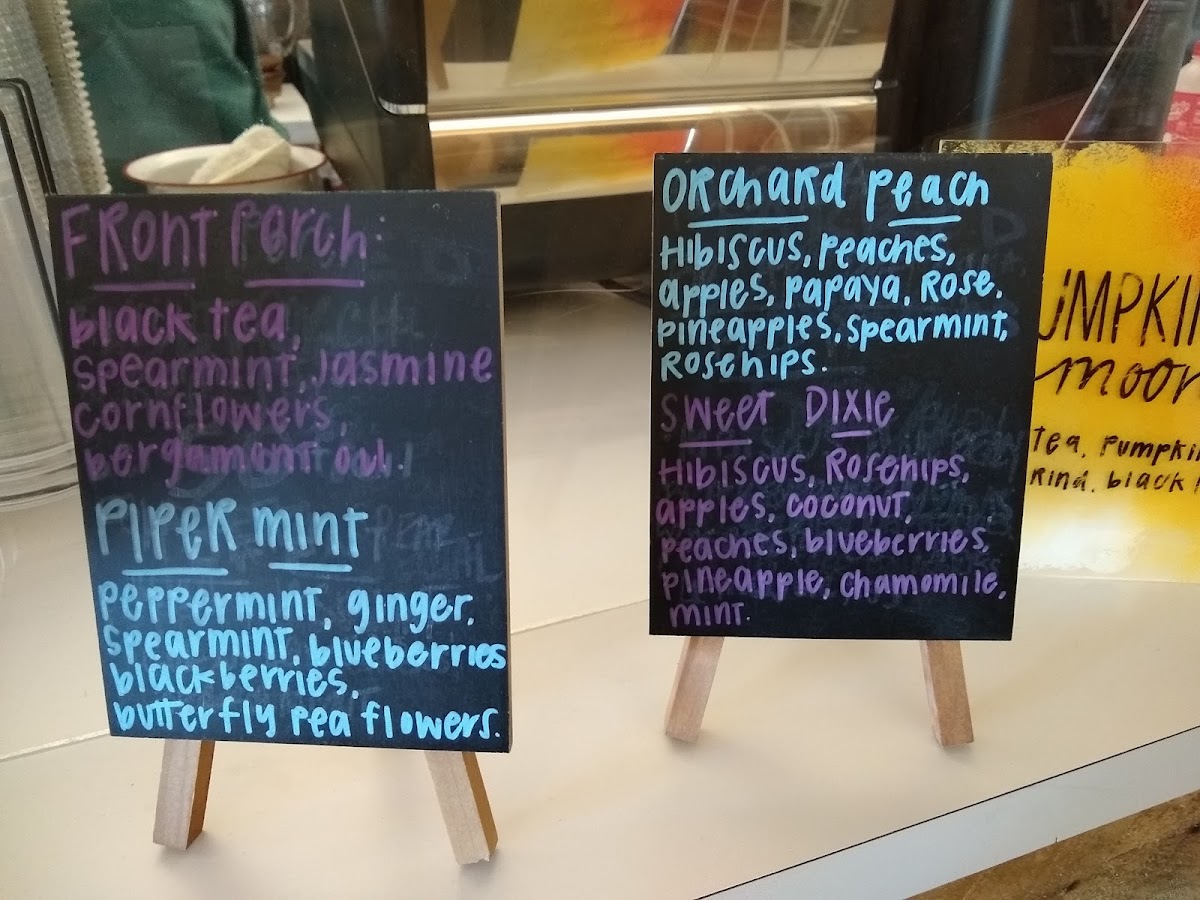 FRONT PORCH
black tea,
spearmint, Jasmine
cornflowers,
bergamont oil.
PIPER MINT
peppermint, ginger,
spearmint, blueberries
blackberries,
butterfly pea flowers.
ORCHARD PEACH
Hibiscus, peaches,
apples, papaya, Rose,
pineapples, spearmint,
Rosehips.
SWEET DIXIE
Hibiscus, Rosehips,
apples, coconut,
peaches, blueberries,
pineapple, chamomile,
mint.
UMPKI
moo
Tea, Pumpki
Rind, black